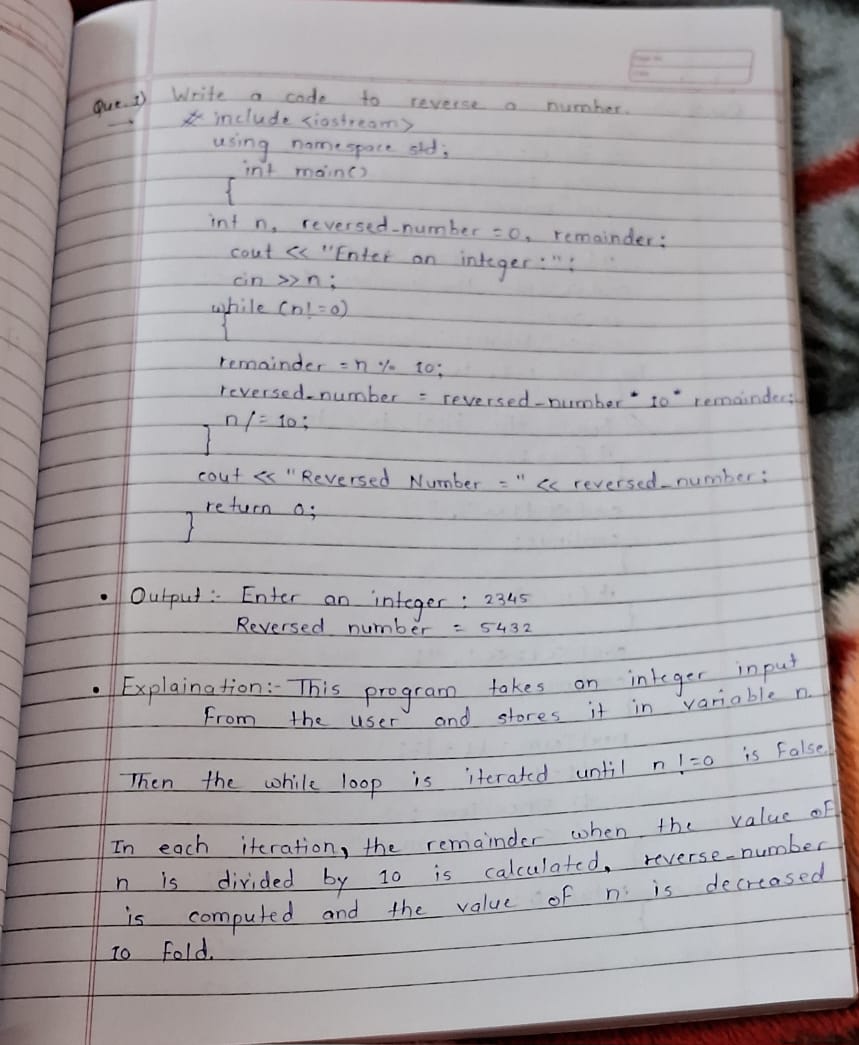 Que.1) Write a code to reverse a number.
# include <iostream>
using namespace std;
int main()
{
int n, reversed_number = 0, remainder;
cout << "Enter an integer:";
cin >> n;
while (n! = 0)
{
remainder = n % 10;
reversed_number = reversed_number * 10 * remainder;
n/= 10;
}
cout << "Reversed Number =" << reversed_number;
return 0;
}
• Output :- Enter an integer : 2345
Reversed number = 5432
• Explaination:- This program takes an integer input
From the user and stores it in variable n.
Then the while loop is iterated until n != 0 is False.
In each iteration, the remainder when the value of
n is divided by 10 is calculated, reverse-number
is computed and the value of n is decreased
10 fold.